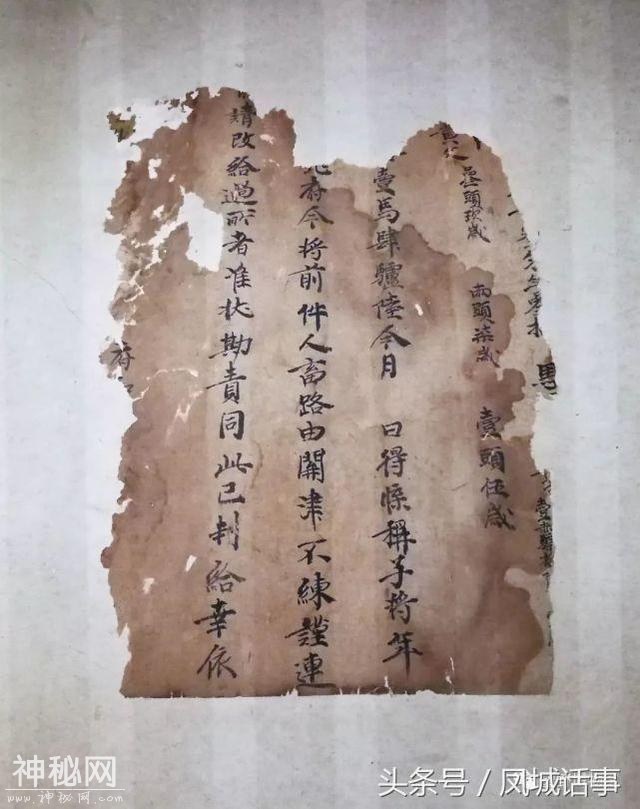 馬
頭玖歲 兩頭柒歲 壹頭伍歲
壹馬肆驢陸今月 日得牒稱手將年
府今將前件人畜路由關津不練謹連
請改給過所者准狀勘責同此已判給幸依
府
神秘网
www.神秘网.COM
头条号 / 凤城话事